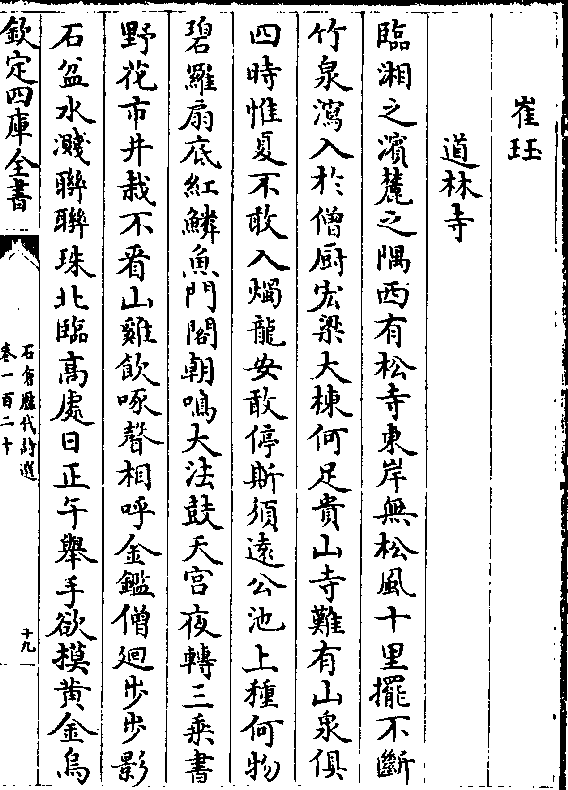 崔珏
道林寺
臨湘之濱麓之隅西有松寺東岸無松風十里擺不斷
竹泉瀉入於僧厨宏梁大棟何足貴山寺難有山泉俱
四時惟夏不敢入燭龍安敢停斯須遠公池上種何物
碧羅扇底紅鱗魚門閣朝鳴大法鼓天宮夜轉三乘書
野花市井栽不看山雞飲啄聲相呼金鑑僧廻步步影
石盆水濺聯聯珠北臨高處日正午舉手欲摸黄金烏
欽定四庫全書
石倉歷代詩選
卷一百二十
十九